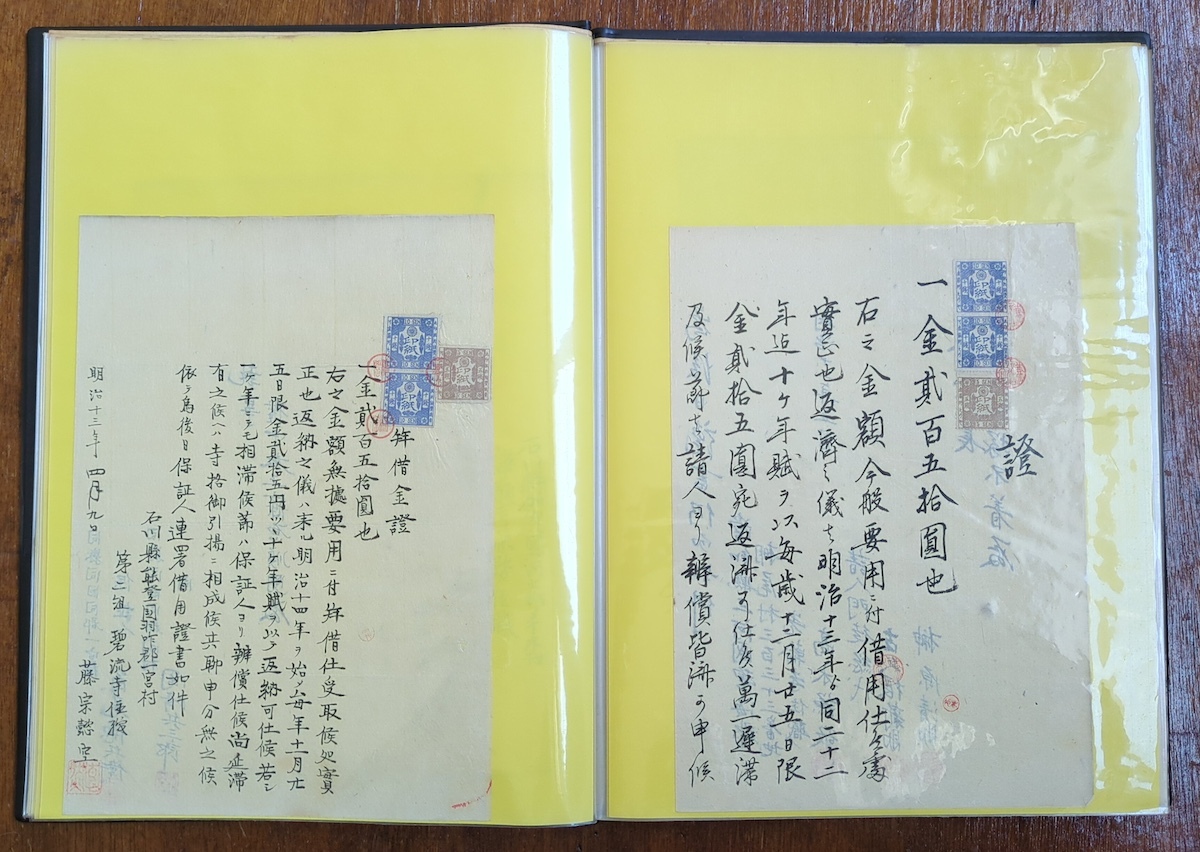 證
一金貳百五拾圓也
右之金額今般要用ニ付借用仕候處
實正也返濟之儀者明治十三年ゟ同二十二
年迠十ヶ年賦ヲ以毎歳十二月廿五日限
金貳拾五圓宛返済可仕候萬一遲滞
及候節者請人ヨリ辨償皆済可申候
印紙
印紙
印紙
年借金證
一金貳百五拾圓也
右之金額無據要用ニ付年借仕受取候処實
正也返納之儀ハ来ル明治十四年ヲ始メ毎年十二月廿
五日限金貳拾五円ツヽ十ヶ年賦ヲ以テ返納可仕候若シ
一ヶ年ニテモ相滞候節ハ保証人ヨリ辨償仕候尚延滞
有之候ヘハ寺格御引揚ニ相成候共聊申分無之候
依テ為後日保証人連署借用證書如件
石川縣能登国羽咋郡一宮村
第三組 碧流寺住職
藤宗
明治十三年四月九日
印紙
印紙
印紙